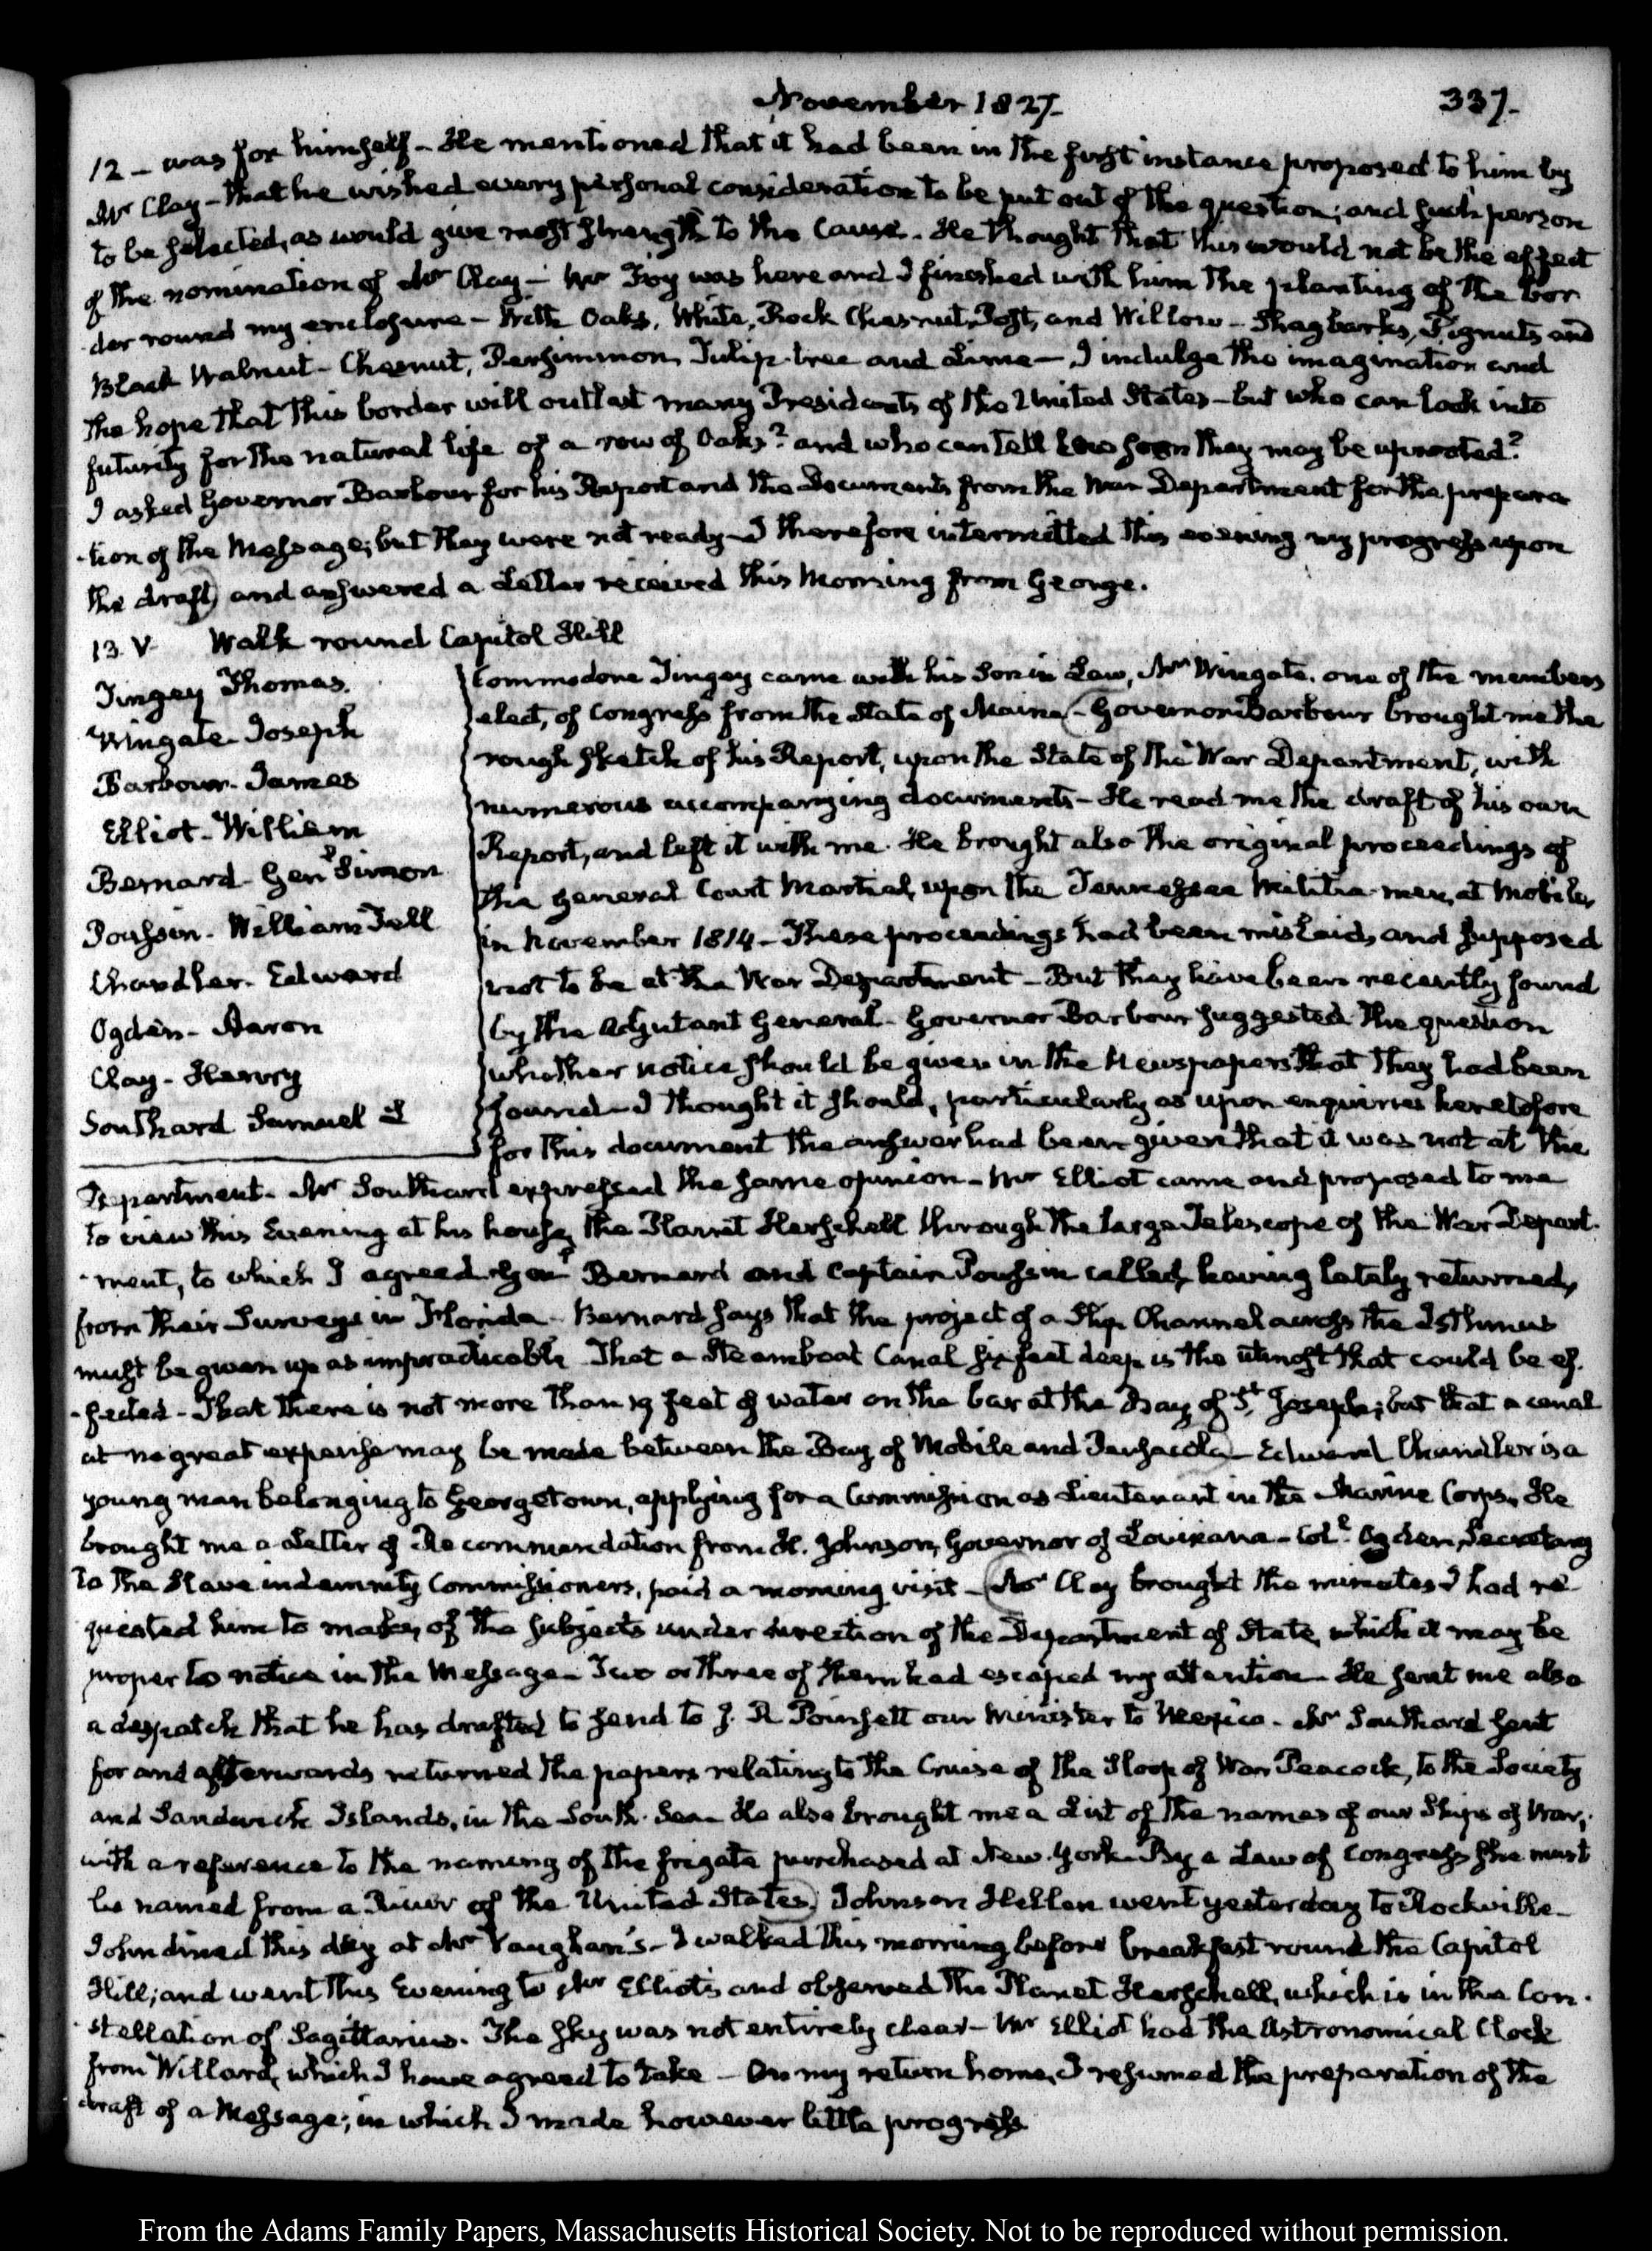 November 1827.
337.
12 - was for himself - He mentioned that it had been in the first instance proposed to him by
Mr Clay - that he wished every personal consideration to be put out of the question; and such person
to be selected, as would give most strength to the Cause. He thought that this would not be the effect
of the nomination of Mr Clay - Mr Foy was here and I finished with him the planting of the bor
der round my enclosure - With Oaks, White, Rock Chesnut, Post, and Willow - Shagbarks, Pignuts and
Black Walnut - Chesnut, Persimmon, Tulip-tree and Lime - I indulge the imagination and
the hope that this border will outlast many Presidents of the United States - but who can look into
futurity for the natural life of a row of Oaks? and who can tell how soon they may be uprooted?
I asked Governor Barbour for his Report and the Documents from the War Department for the prepara
-tion of the Message; but they were not ready - I therefore intermitted this evening my progress upon
the draft, and answered a Letter received this Morning from George.
13. V. Walk round Capitol Hill
Tingey Thomas.
Wingate Joseph
Barbour. James
Elliot - William
Bernard - Genl Simon
Poussin - William Tell
Chandler - Edward
Ogden - Aaron
Clay - Henry
Southard Samuel L
Commodore Tingey came with his Son in Law, Mr Wingate, one of the members
elect, of Congress from the State of Maine - Governor Barbour brought me the
rough sketch of his Report, upon the State of the War Department, with
numerous accompanying documents - He read me the draft of his own
Report, and left it with me. He brought also the original proceedings of
the General Court Martial, upon the Tennessee Militia-men, at Mobile,
in November 1814 - These proceedings had been mislaid, and supposed
not to be at the War Department - But they have been recently found
by the Adjutant General - Governor Barbour suggested the question
whether notice should be given in the Newspapers that they had been
found - I thought it should, particularly as upon enquiries heretofore
for this document the answer had been given that it was not at the
Department. Mr Southard expressed the same opinion - Mr Elliot came and proposed to me
to view this Evening at his house, the Planet Herschell through the large Telescope of the War Depart-
-ment, to which I agreed. Genl Bernard and Captain Poussin called, having lately returned,
from their Surveys in Florida - Bernard says that the project of a Ship Channel across the Isthmus
must be given up as impracticable. That a Steamboat Canal six feet deep is the utmost that could be ef.
-fected - That there is not more than 19 feet of water on the bar at the Bay of St Joseph; but that a canal
at no great expense may be made between the Bay of Mobile and Pensacola - Edward Chandler is a
young man belonging to Georgetown, applying for a Commission as Lieutenant in the Marine Corps. He
brought me a Letter of Recommendation from H. Johnson, Governor of Louisiana - Coll Ogden, Secretary
to the Slave indemnity Commissioners, paid a morning visit - Mr Clay brought the minutes I had re
quested him to make, of the subjects under direction of the Department of State, which it may be
proper to notice in the Message - Two or three of them had escaped my attention - He sent me also
a despatch that he has drafted to send to J. R. Poinsett our Minister to Mexico - Mr Southard sent
for and afterwards returned the papers relating to the Cruise of the Sloop of War Peacock, to the Society
and Sandwich Islands, in the South-Sea - He also brought me a List of the names of our Ships of War,
with a reference to the naming of the frigate purchased at New-York - By a Law of Congress she must
be named from a River of the United States, Johnson Hellen went yesterday to Rockville -
John dined this day at Mr Vaughan's - I walked this morning before breakfast round the Capitol
Hill; and went this Evening to Mr Elliot's and observed the Planet Herschell, which is in the Con-
-stellation of Sagittarius. The sky was not entirely clear - Mr Elliot had the Astronomical Clock
from Willard, which I have agreed to take - On my return home, I resumed the preparation of the
draft of a Message; in which I made however little progress
From the Adams Family Papers, Massachusetts Historical Society. Not to be reproduced without permission.